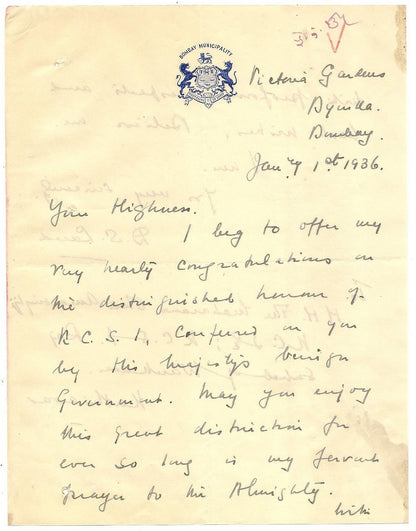 BOMBAY MUNICIPALITY
Victoria Gardens
Byculla.
Bombay.
Jan'y 1st 1936.
Your Highness.
I beg to offer my
very hearty congratulations on
the distinguished honour of
K.C.S.I., conferred on you
by His Majesty's benign
Government. May you enjoy
this great distinction for
ever so long is my fervent
prayer to the Almighty.
With